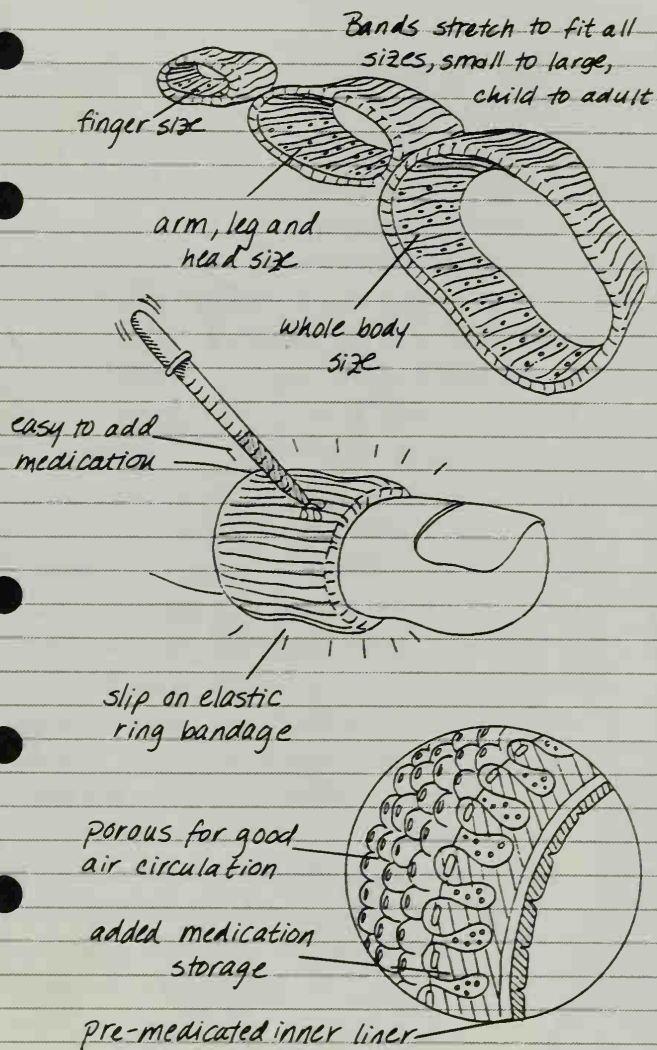 Bands stretch to fit all
sizes, small to large,
child to adult
finger size
arm, leg and
head size
whole body
size
easy to add
medication
slip on elastic
ring bandage
porous for good
air circulation
added medication
storage
pre-medicated inner liner